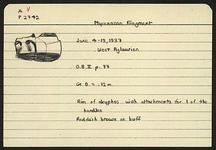 A V
P 2742
Mycenaean Fragment
June 14-17, 1937
West Aylearian
O.B. II p. 77
Gr. D. = .12 m
Rim of skyphos with attachments for 1 of the
handles
Reddish brown on buff